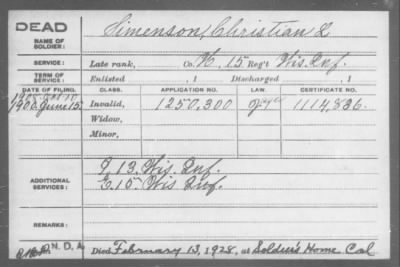 DEAD
NAME OF SOLDIER: Simenson, Christian L
SERVICE: Late rank, Co. K, 15 Reg't Wis. Inf.
TERM OF SERVICE: Enlisted , 1 Discharged , 1
DATE OF FILING. CLASS. APPLICATION NO. LAW. CERTIFICATE NO.
1900 June 15. Invalid, 1250,300 1114,836.
Widow,
Minor,
ADDITIONAL SERVICES: 13, Wis. Inf.
E. 15 Wis Inf.
REMARKS:
Died February 13, 1928, at Soldier's Home Cal